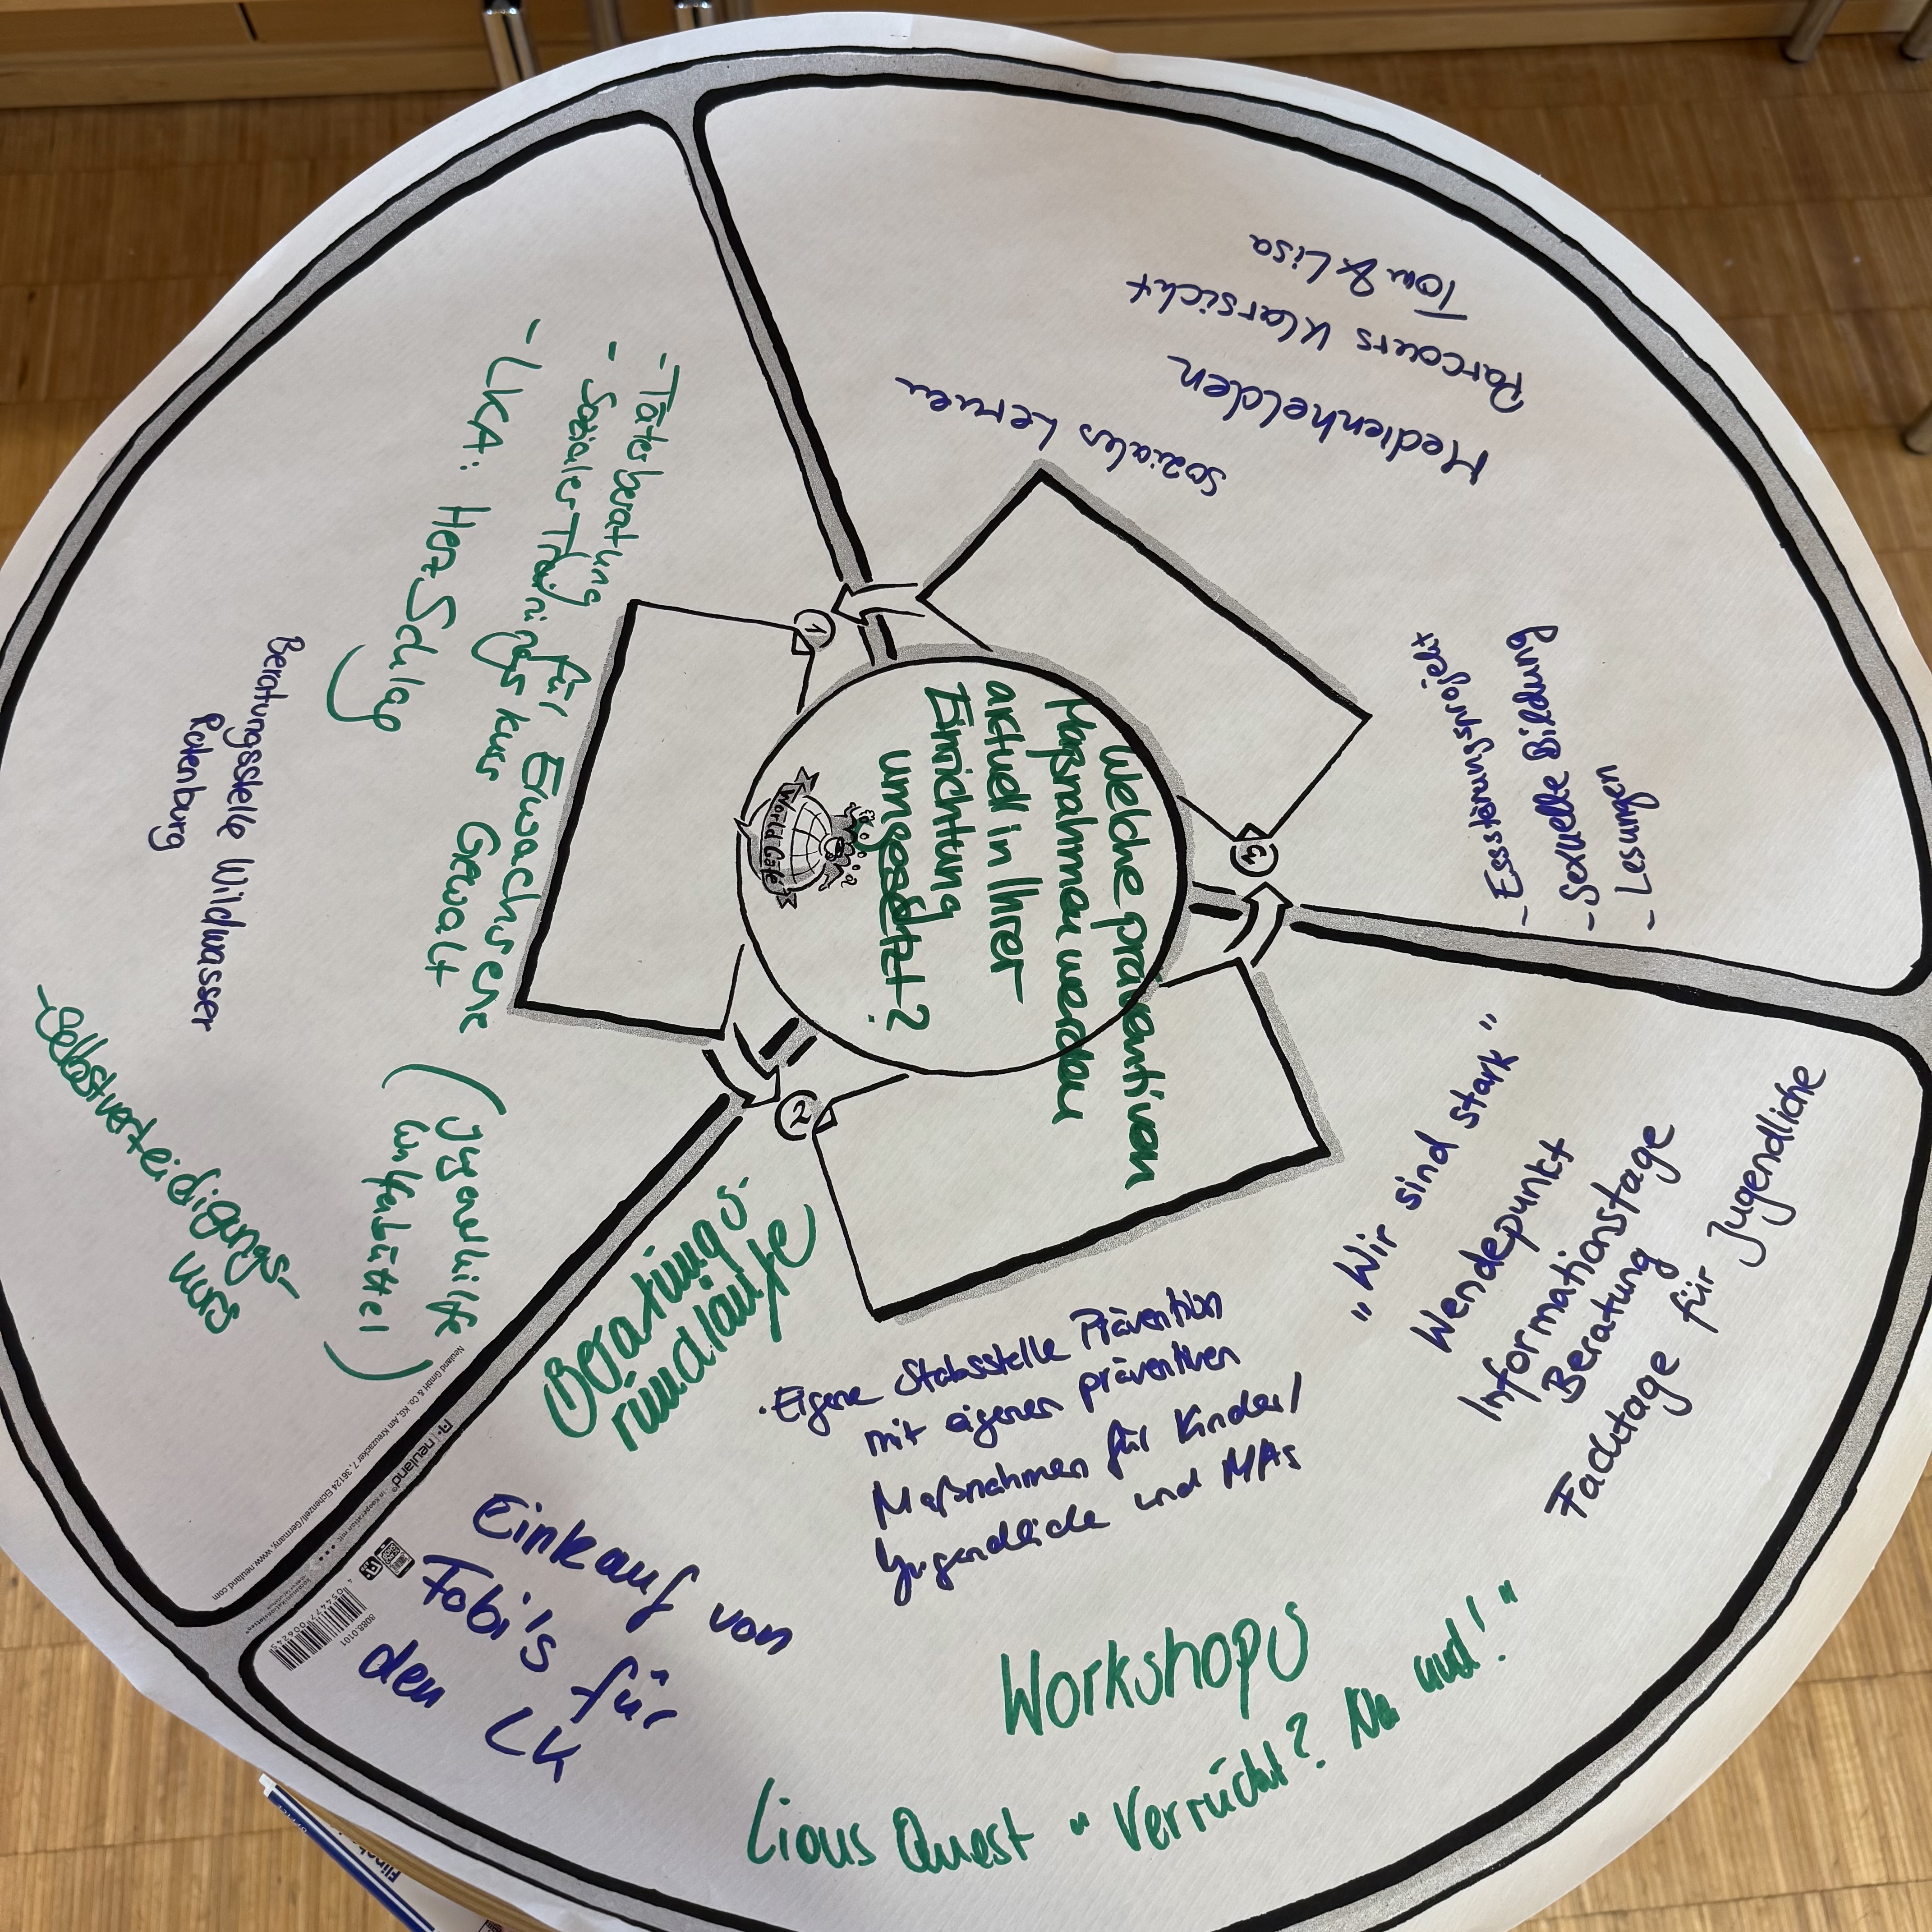 Welche präventiven
Maßnahmen werden
aktuell in Ihrer
Einrichtung
umgesetzt?
World Café
1
- Täterberatung für Erwachsene
- Sozialer Trainingskurs Gewalt
- LKA: HerzSchlag
(Jugendhilfe
Wolfsbüttel)
Beratungsstelle Wildwasser
Rotenburg
- Selbstverteidigungs-
kurs
2
Beratungs-
rundläufe
· Eigene Stabsstelle Prävention
mit eigenen präventiven
Maßnahmen für Kinder/
Jugendliche und MAs
Einkauf von
Fobi's für
den LK
Workshops
Lions Quest "Verrückt? Na und!"
"Wir sind stark"
Wendepunkt
Informationstage
Beratung
Fachtage für Jugendliche
3
- Essstörungsprojekt
- Sexuelle Bildung
- Lesungen
soziales Lernen
Medienhelden
Parcours Klarsicht
Tom & Lisa
Neuland GmbH & Co. KG, Am Kreuzacker 7, 36124 Eichenzell/Germany, www.neuland.com
neuland
in Kooperation mit
8088.0101